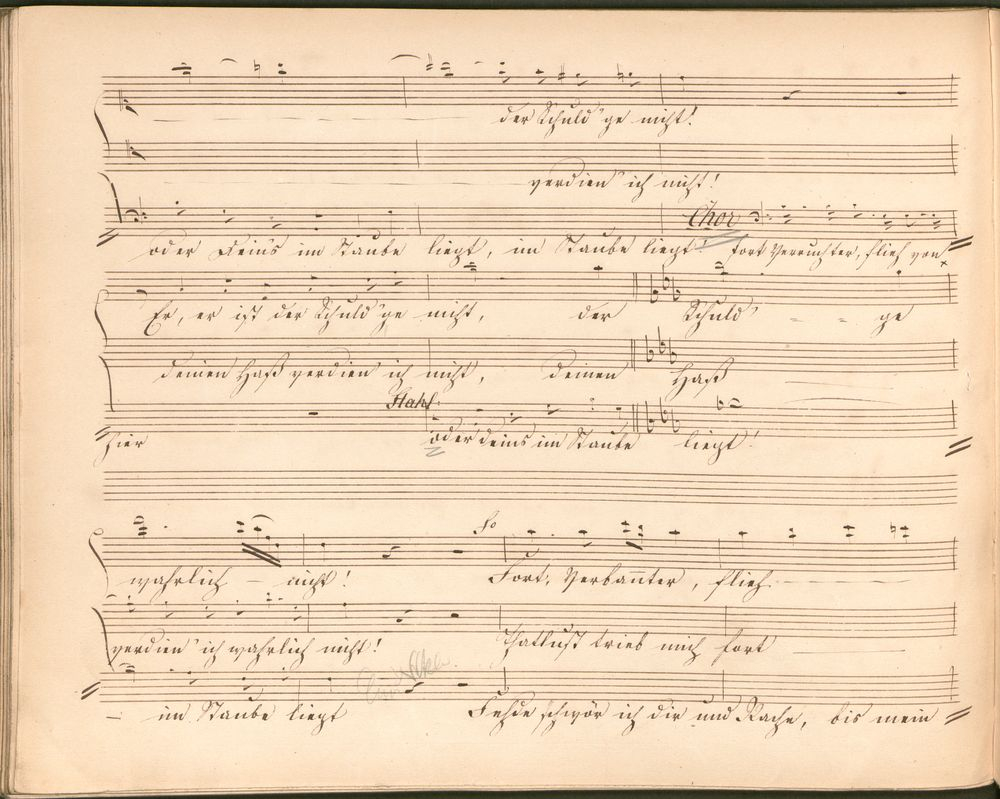 der Schuld'ge nicht!
verdien' ich nicht!
Chor
oder deins im Staube liegt, im Staube liegt! fort Verruchter, flieh von
Er, er ist der Schuld'ge nicht, der Schuld' - - ge
deinen Haß verdien' ich nicht, deinen Haß
Stahl:
hier oder deins im Staube liegt!
So
wahrlich - nicht! Fort, Verbannter, flieh
verdien' ich wahrlich nicht! Thatlust trieb mich fort
- im Staube liegt Fehde schwör ich dir und Rache, bis mein